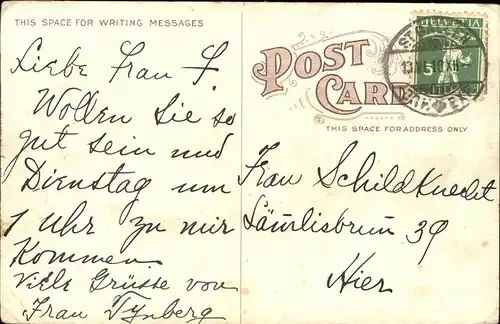 THIS SPACE FOR WRITING MESSAGES
Liebe Frau F.
Wollen Sie so
gut sein und
Dienstag um
1 Uhr zu mir
Kommen
Viele Grüsse von
Frau Tynberg
POST
CARD
THIS SPACE FOR ADDRESS ONLY
HELVETIA
5
Frau Schildknecht
Läurlisbrun 39
Hier